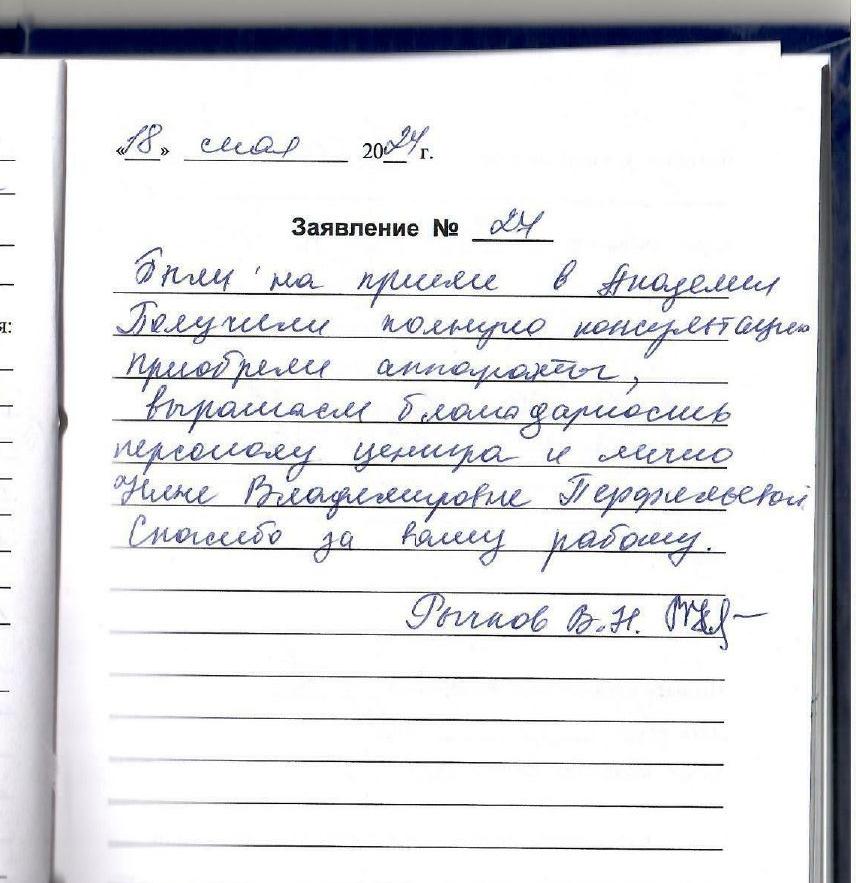 «18» мая 2024 г.
Заявление № 24
Были на приеме в Академии
Получили полную консультацию
приобрели аппараты,
выражаем благодарность
персоналу центра и лично
Владимировне Перфильевой
Спасибо за вашу работу.
Рычков В.Н.
я: